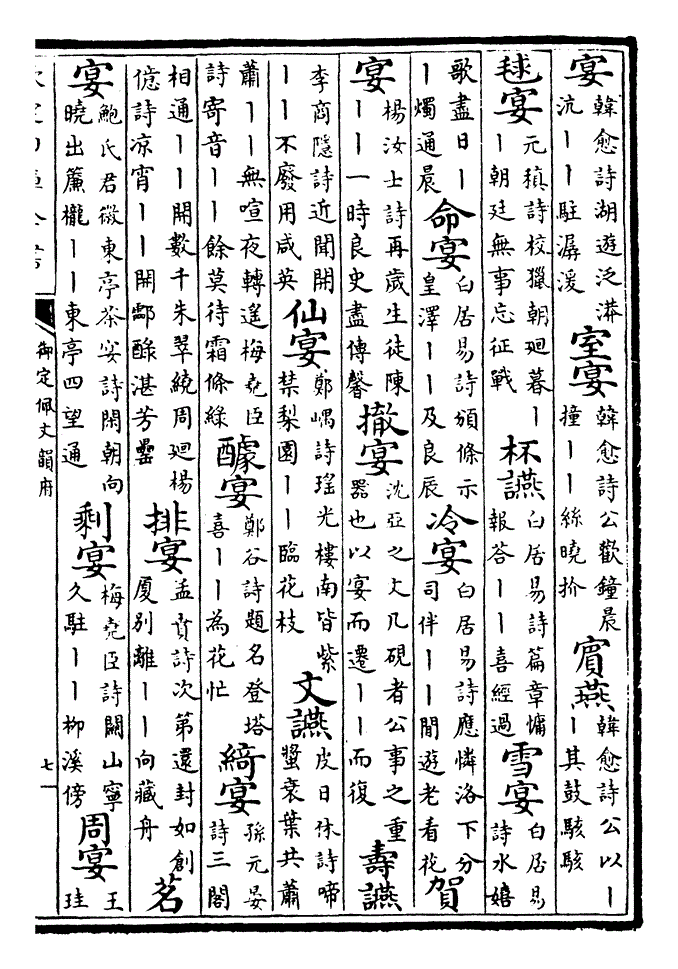 宴韓愈詩湖遊泛漭沆丨丨駐潺湲室宴韓愈詩公歡鐘晨撞丨丨絲曉扴賓燕韓愈詩公以丨丨其鼓駭駭
毬宴元稹詩校獵朝廻暮丨丨朝廷無事忘征戰杯讌白居易詩篇章慵報答丨丨喜經過雪宴白居易詩水嬉
歌盡日丨丨燭通晨命宴白居易詩頒條示皇澤丨丨及良辰冷宴白居易詩應憐洛下分司伴丨丨閒遊老看花賀
宴楊汝士詩再歲生徒陳丨丨一時良史盡傳馨撤宴沈亞之文几硯者公事之重器也以宴而遷丨丨而復壽讌
李商隱詩近聞開丨丨不廢用咸英仙宴鄭嵎詩瑤光樓南皆紫禁梨園丨丨臨花枝文讌皮日休詩啼螿衰葉共蕭
蕭丨丨無喧夜轉遙梅堯臣詩寄音丨丨餘莫待霜條綠醵宴鄭谷詩題名登塔喜丨丨為花忙綺宴孫元晏詩三閣
相通丨丨開數千朱翠繞周廻楊億詩凉宵丨丨開酃醁湛芳罍排宴孟賁詩次第還封如創厦別離丨丨向藏舟茗
宴鮑氏君徽東亭茶宴詩閑朝向曉出簾櫳丨丨東亭四望通剩宴梅堯臣詩關山寧久駐丨丨柳溪傍周宴王珪
御定佩文韻府
七